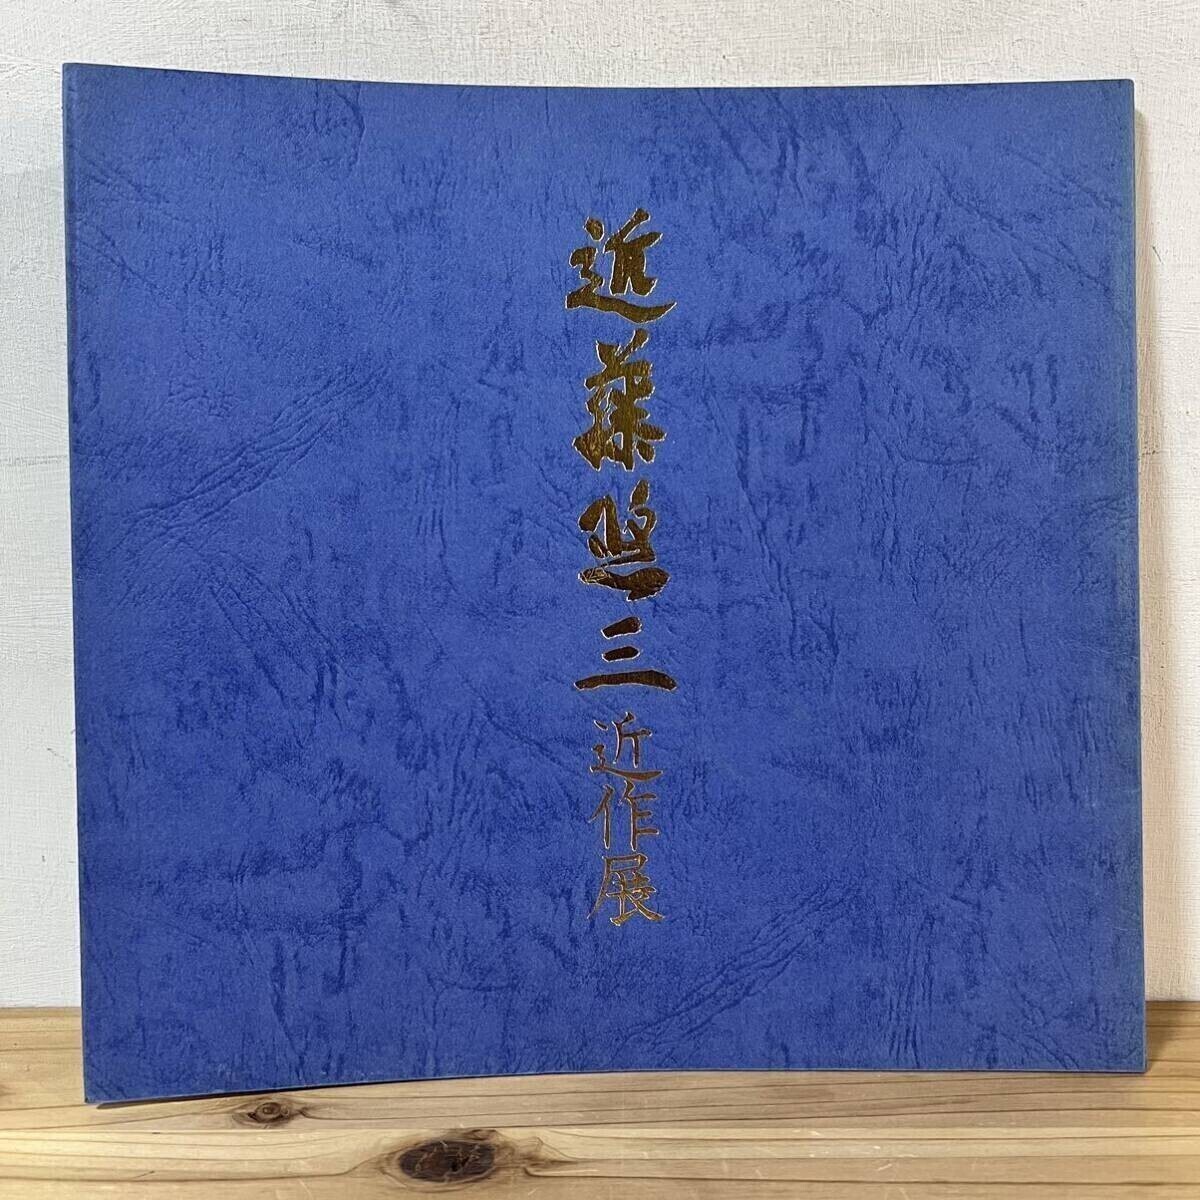 近藤悠三近作展